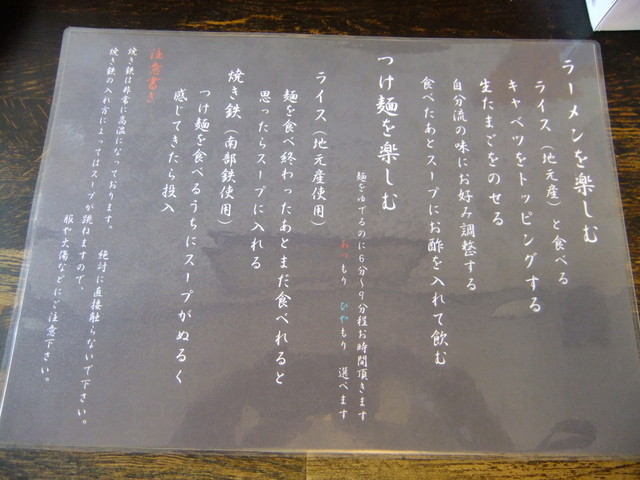 ラーメンを楽しむ
ライス（地元産）と食べる
キャベツをトッピングする
生たまごをのせる
自分流の味にお好み調整する
食べたあとスープにお酢を入れて飲む
つけ麺を楽しむ
麺をゆでるのに6分～9分程お時間頂きます
あつもり ひやもり 選べます
ライス（地元産使用）
麺を食べ終わったあとまだ食べれると
思ったらスープに入れる
焼き鉄（南部鉄使用）
つけ麺を食べるうちにスープがぬるく
感じてきたら投入
注意書き
焼き鉄は非常に高温になっております。 絶対に直接触らないで下さい。
焼き鉄の入れ方によってはスープが跳ねますので、
服や火傷などにご注意下さい。